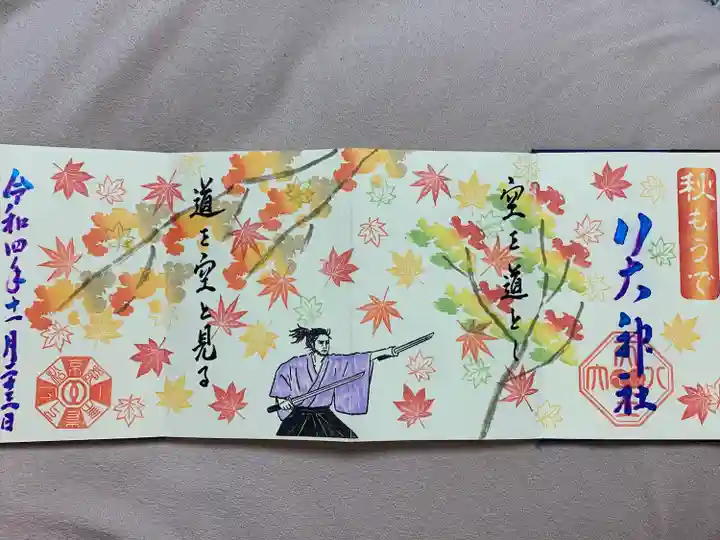 秋もうで
八大神社
空を道とし
道を空と見る
令和四年十一月二十三日